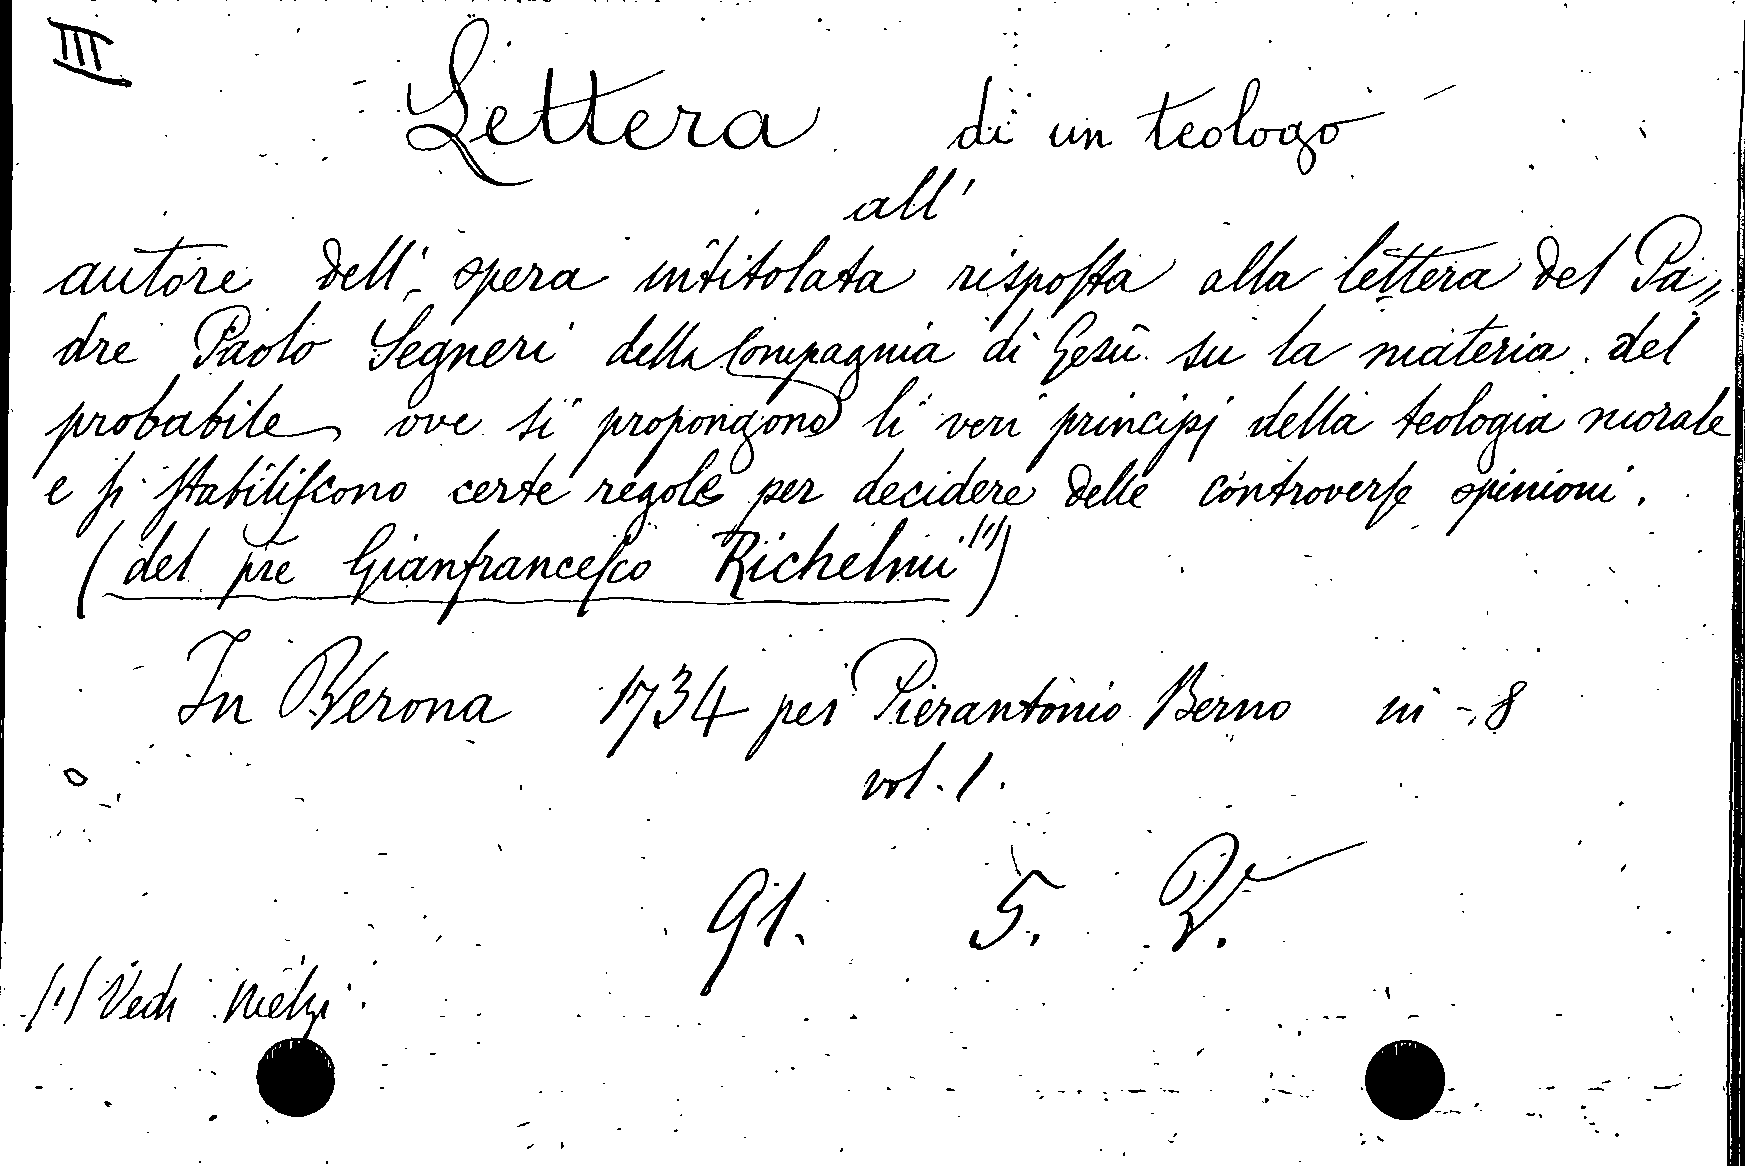 III
Lettera di un teologo
all'
autore dell' opera intitolata risposta alla lettera del Pa„
dre Paolo Segneri della Compagnia di Gesù su la materia del
probabile ove si propongono li veri principj della teologia morale
e si stabiliscono certe regole per decidere delle controverse opinioni.
(del pre Gianfrancesco Richelmi (1))
In Verona 1734 per Pierantonio Berno in - 8
vol. 1.
91. 5. V.
(1) Vedi Melzi